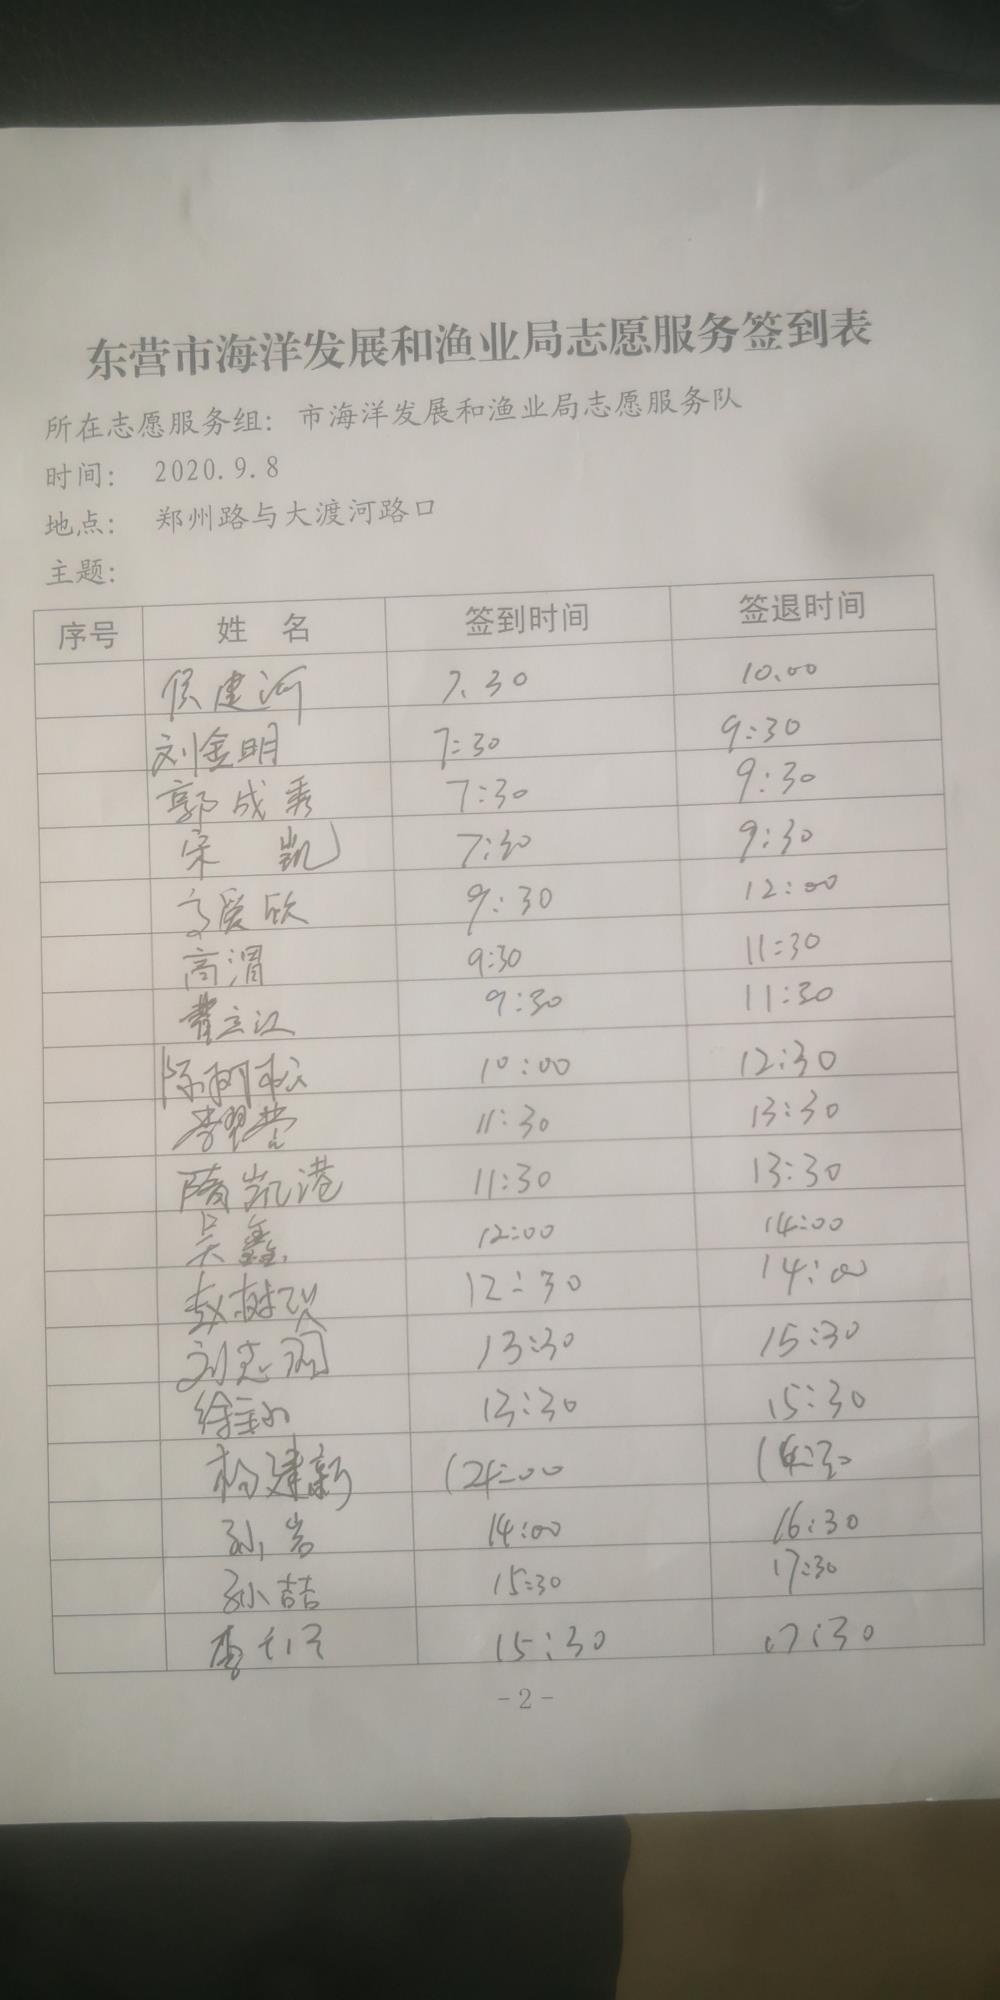 东营市海洋发展和渔业局志愿服务签到表
所在志愿服务组：市海洋发展和渔业局志愿服务队
时间： 2020.9.8
地点： 郑州路与大渡河路口
主题：
序号 姓 名 签到时间 签退时间
侯建河 7.30 10.00
刘金明 7:30 9:30
郭成秀 7:30 9:30
宋 凯 7:30 9:30
9:30 12:00
高渭 9:30 11:30
曹立江 9:30 11:30
陈树松 10:00 12:30
李翠营 11:30 13:30
隋凯港 11:30 13:30
吴鑫 12:00 14:00
赵树 12:30 14:00
刘志 13:30 15:30
徐 13:30 15:30
杨建新
孙岩 14:00 16:30
孙喆 15:30 17:30
李 15:30 17:30
-2-